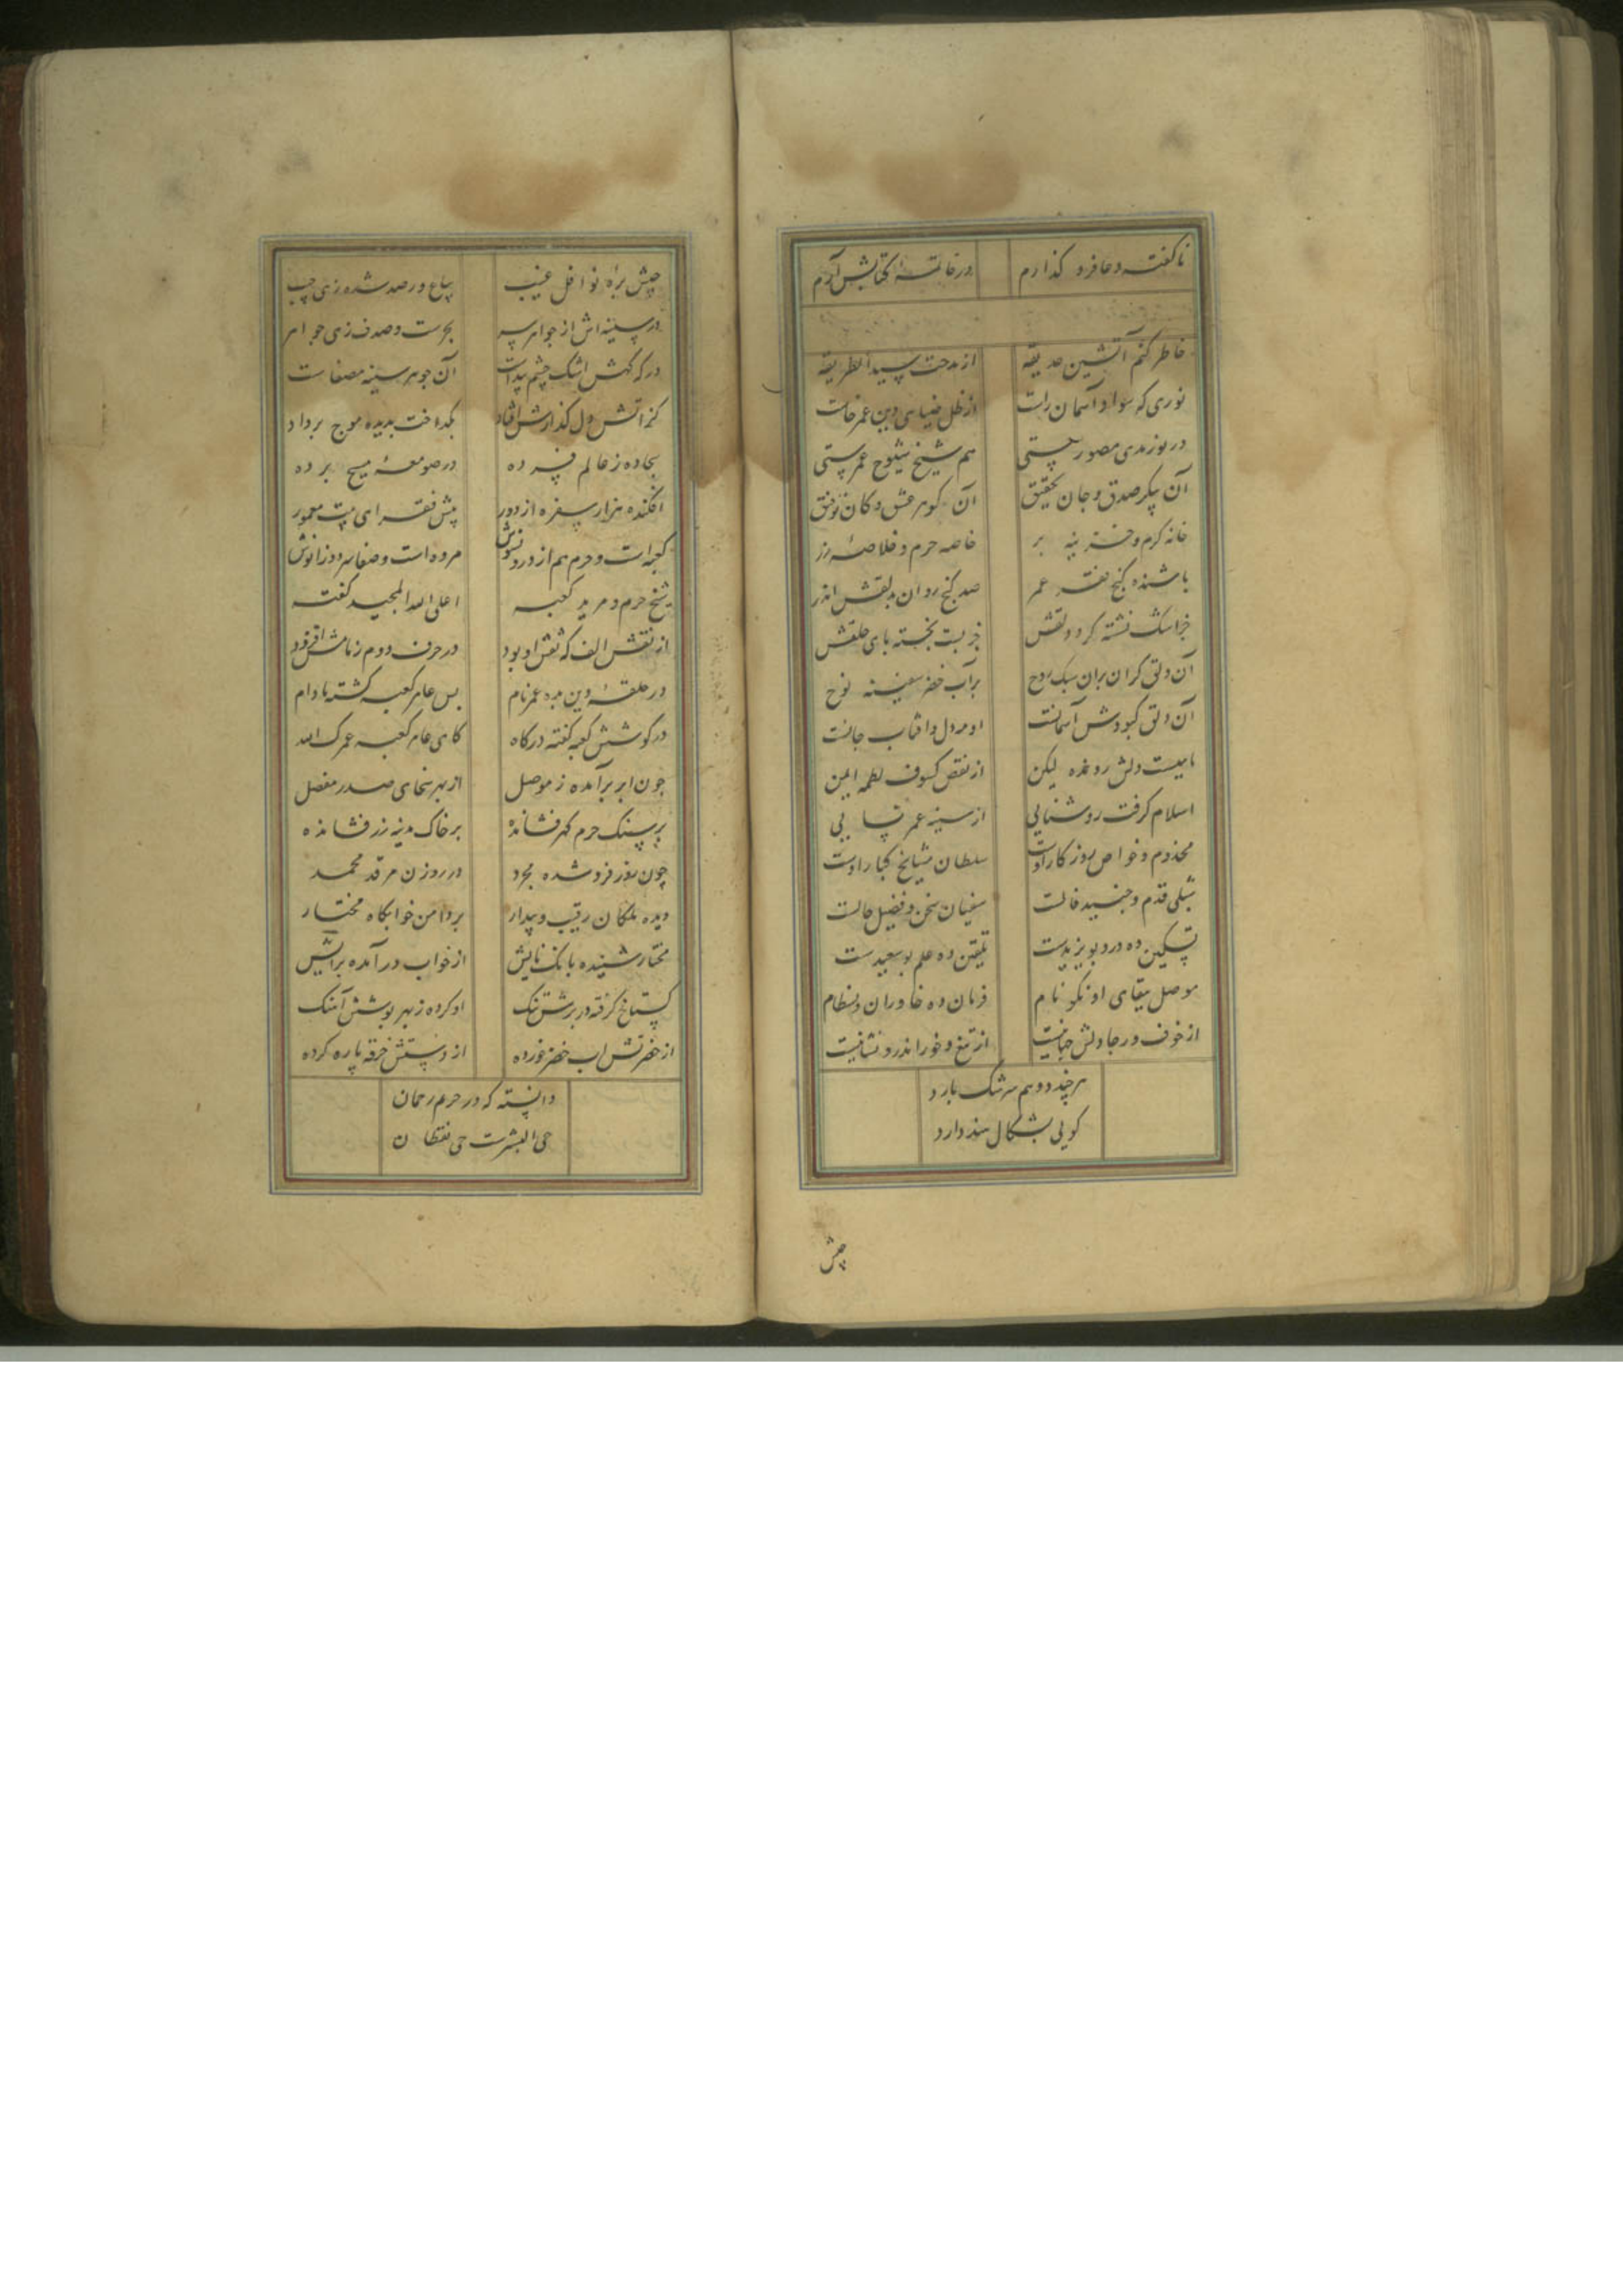 ناکفته دعا فرو کذارم در خاتمهٔ کتابش آرم
خاطر کنم آتشین حدیقه از مدحت سید الطریقه
نوری که سواد آسمان راست از ظل ضیای دین عمر خاست
هم شیخ شیوخ عمر
آن پیکر صدق و جان تحقیق آن کوهر عشق و کان توفیق
خانه کرم و خزینه بر خاصه حرم و خلاصهٔ
باشنده کنج فقه عمر صد کنج روان بدلقش اندر
آن دلق کران بران سبک روح بر آب خضر سفینه نوح
آن دلق کبودش آسمانست او مه دل و آفتاب جانست
ماهیست دلش رونده لیکن از نقص کسوف لطمه ایمن
اسلام کرفت روشنایی از سینهٔ عمر
مخدوم و خواص روزکار اوست سلطان مشایخ کبار اوست
شبلی قدم و جنید قالست سفیان سخن و فضیل حالست
تسکین ده درد بویزیدست تلقین ده علم بوسعیدست
موصل ببقای او نکو نام فرمان ده خاوران و بسطام
از خوف و رجا دلش از تیغ و خور اندرو نشانیست
هر چند دو هم سرشک بارد
کویی بشکال هند دارد
چش
چش براه نوافل غیب بیاع ورصد شده زهی چب
در سینه اش از جواهر سر بحرست و صدف زهی جواهر
در که کهش اشک چشم پیداست آن جوهر سینه مصفاست
کز آتش دل کذارش افتاد بکداخت بدیده موج برداد
سجاده ز عالم فسرده در صومعهٔ مسیح برده
افکنده هزار سفره از دور پیش فقرای بیت معمور
کعبه است و حرم هم از درونش مروه است و صفا سر دو زانوش
شیخ حرم و مرید کعبه اعلی الله المجید کعبه
از نقش الف که نقش او بود در حرف دوم ز نامش افزود
در حلقهٔ دین بده عمر نام پس عامر کعبه کشته مادام
در کوشش کعبه کفته درکاه کای عامر کعبه عمرک الله
چون ابر برآمده ز موصل از بهر سخای صدر مفضل
بر سنک حرم کهر فشانده بر خاک مدینه زر فشانده
چون روز فرو شده بخرد در روزن مرقد محمد
دیده ملکان رقیب و بیدار بر دامن خوابکاه مختار
مختار شنیده بانک پایش از خواب درآمده برایش
کستاخ کرفته در برش تنک او کرده ز بهر بوسش آهنک
از خضر تش اب خضر خورده از دستش خرقه پاره کرده
دانسته که در حرم رحمان
حی البشرست حی نقظان